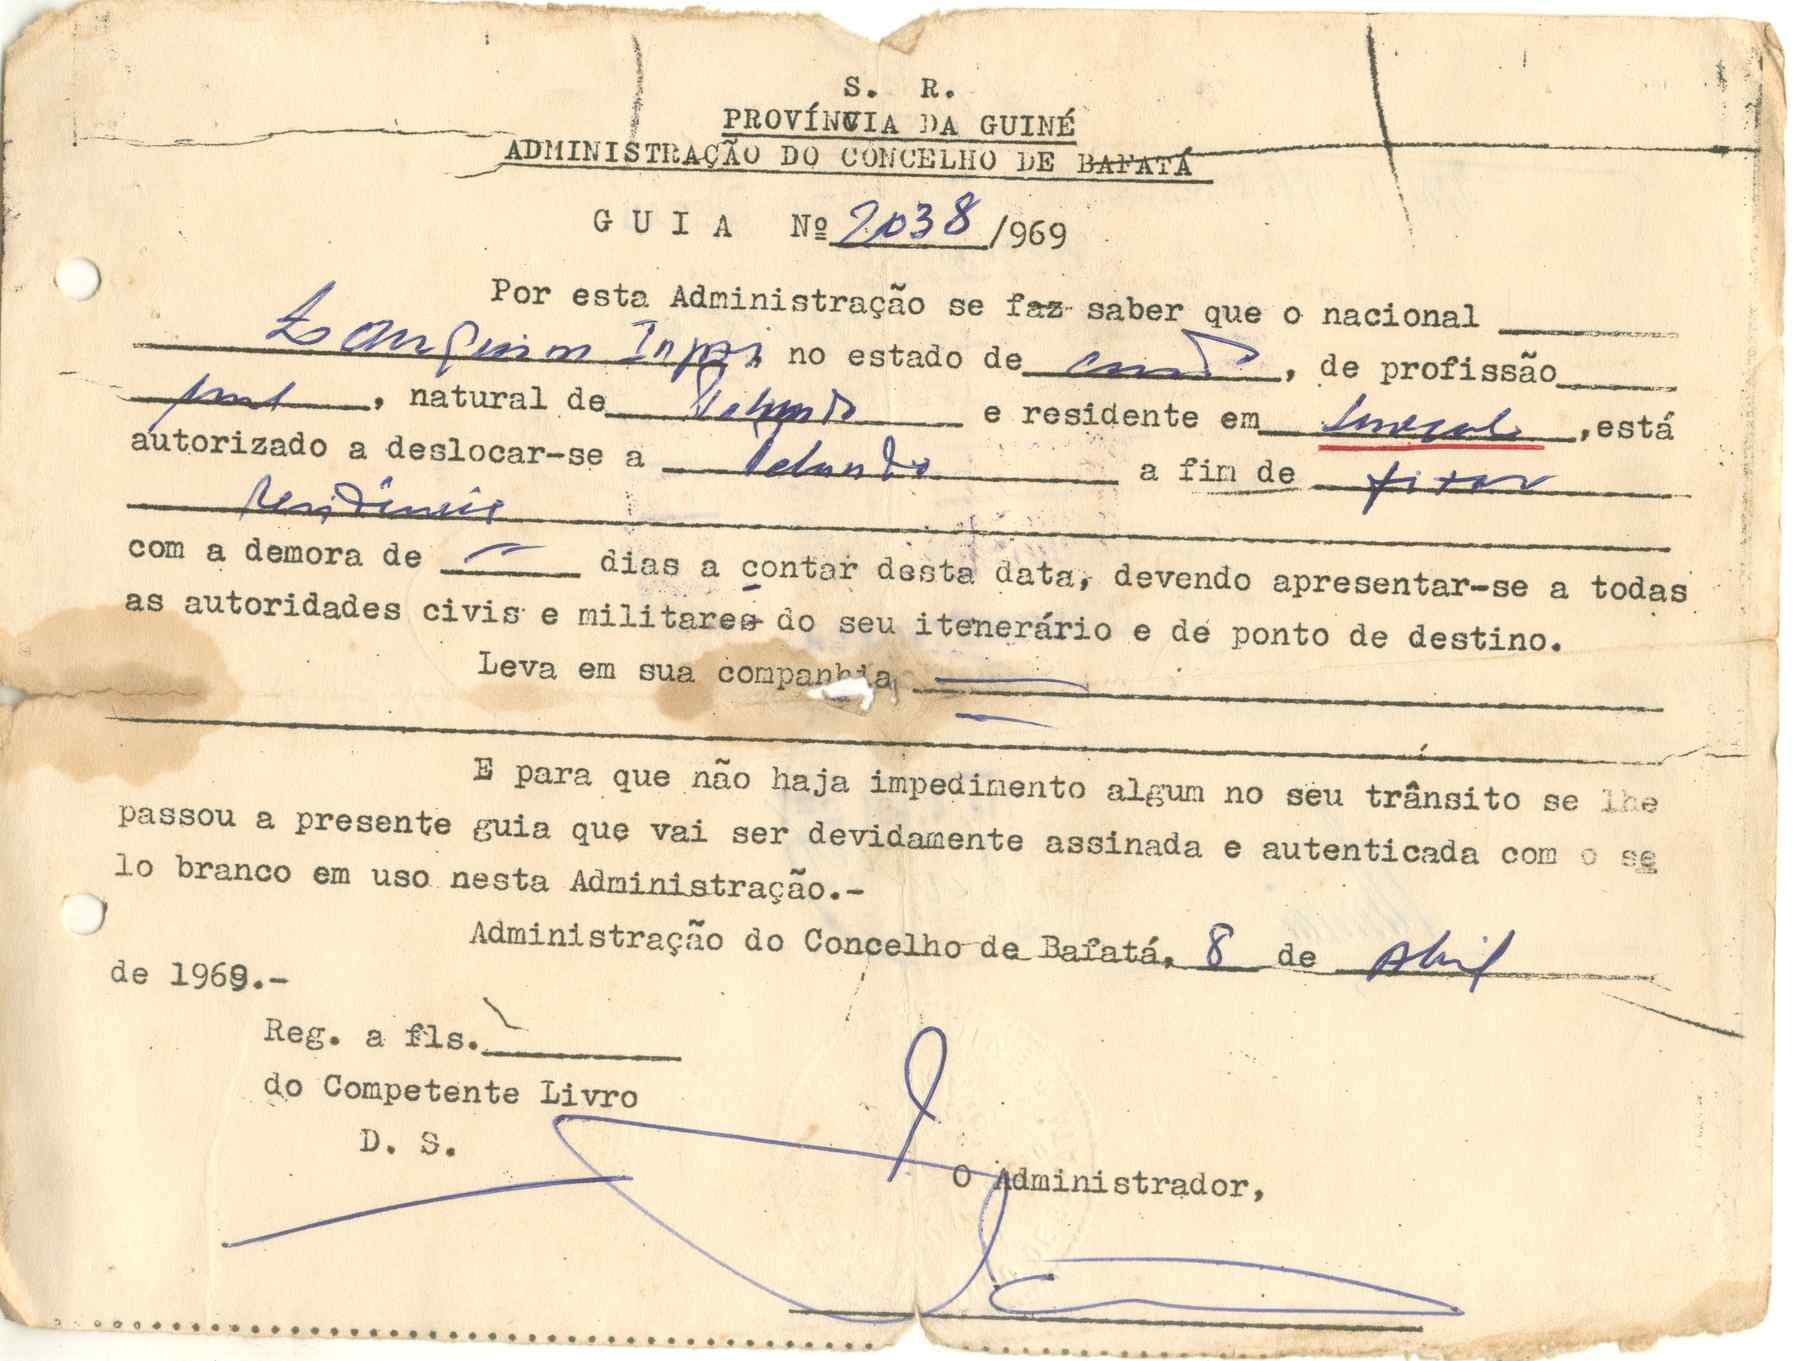 S. R.
PROVÍNCIA DA GUINÉ
ADMINISTRAÇÃO DO CONCELHO DE BAFATÁ
GUIA Nº 2038/969
Por esta Administração se faz saber que o nacional
, no estado de , de profissão
, natural de e residente em Senegal, está
autorizado a deslocar-se a a fim de fixar
residência
com a demora de — dias a contar desta data, devendo apresentar-se a todas
as autoridades civis e militares do seu itenerário e de ponto de destino.
Leva em sua companhia, —
—
E para que não haja impedimento algum no seu trânsito se lhe
passou a presente guia que vai ser devidamente assinada e autenticada com o se
lo branco em uso nesta Administração.-
Administração do Concelho de Bafatá, 8 de Abril
de 1969.-
Reg. a fls.
do Competente Livro
D. S.
O Administrador,